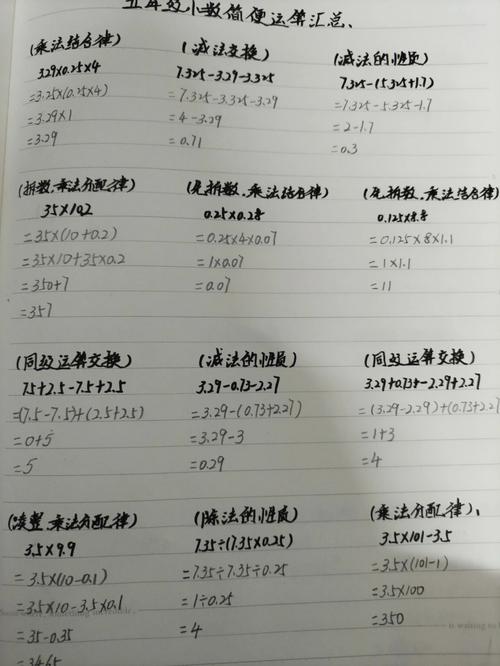 五年级小数简便运算汇总、
(乘法结合律)
3.29×0.25×4
=3.25×(0.25×4)
=3.29×1
=3.29
(减法交换)
7.325-3.29-3.325
=7.325-3.325-3.29
=4-3.29
=0.71
(减法的性质)
7.325-(5.325+1.7)
=7.325-5.325-1.7
=2-1.7
=0.3
(拆数、乘法分配律)
35×10.2
=35×(10+0.2)
=35×10+35×0.2
=350+7
=357
(先拆数、乘法结合律)
0.25×0.28
=0.25×4×0.07
=1×0.07
=0.07
(先拆数、乘法结合律)
0.125×8.8
=0.125×8×1.1
=1×1.1
=11
(同级运算交换)
7.5+2.5-7.5+2.5
=(7.5-7.5)+(2.5+2.5)
=0+5
=5
(减法的性质)
3.29-0.73-2.27
=3.29-(0.73+2.27)
=3.29-3
=0.29
(同级运算交换)
3.29+0.73-2.29+2.27
=(3.29-2.29)+(0.73+2.27
=1+3
=4
(凑整、乘法分配律)
3.5×9.9
=3.5×(10-0.1)
=3.5×10-3.5×0.1
=35-0.35
=34.65
(除法的性质)
7.35÷(7.35×0.25)
=7.35÷7.35÷0.25
=1÷0.25
=4
(乘法分配律)、
3.5×101-3.5
=3.5×(101-1)
=3.5×100
=350